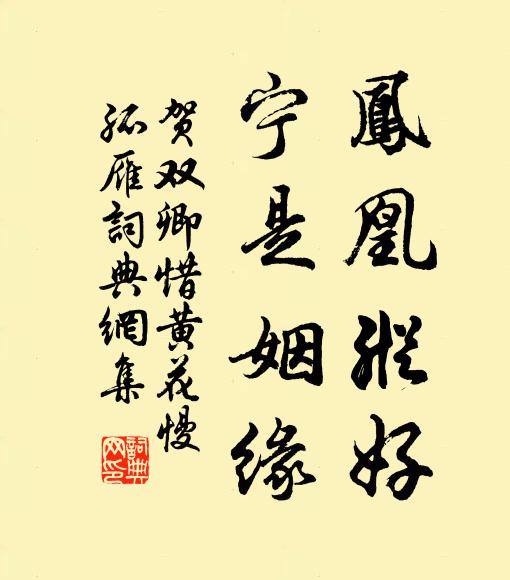 鳳凰縱好
宁是姻緣
贺双卿惜黄花慢
孤雁詞典網集
詞典网印